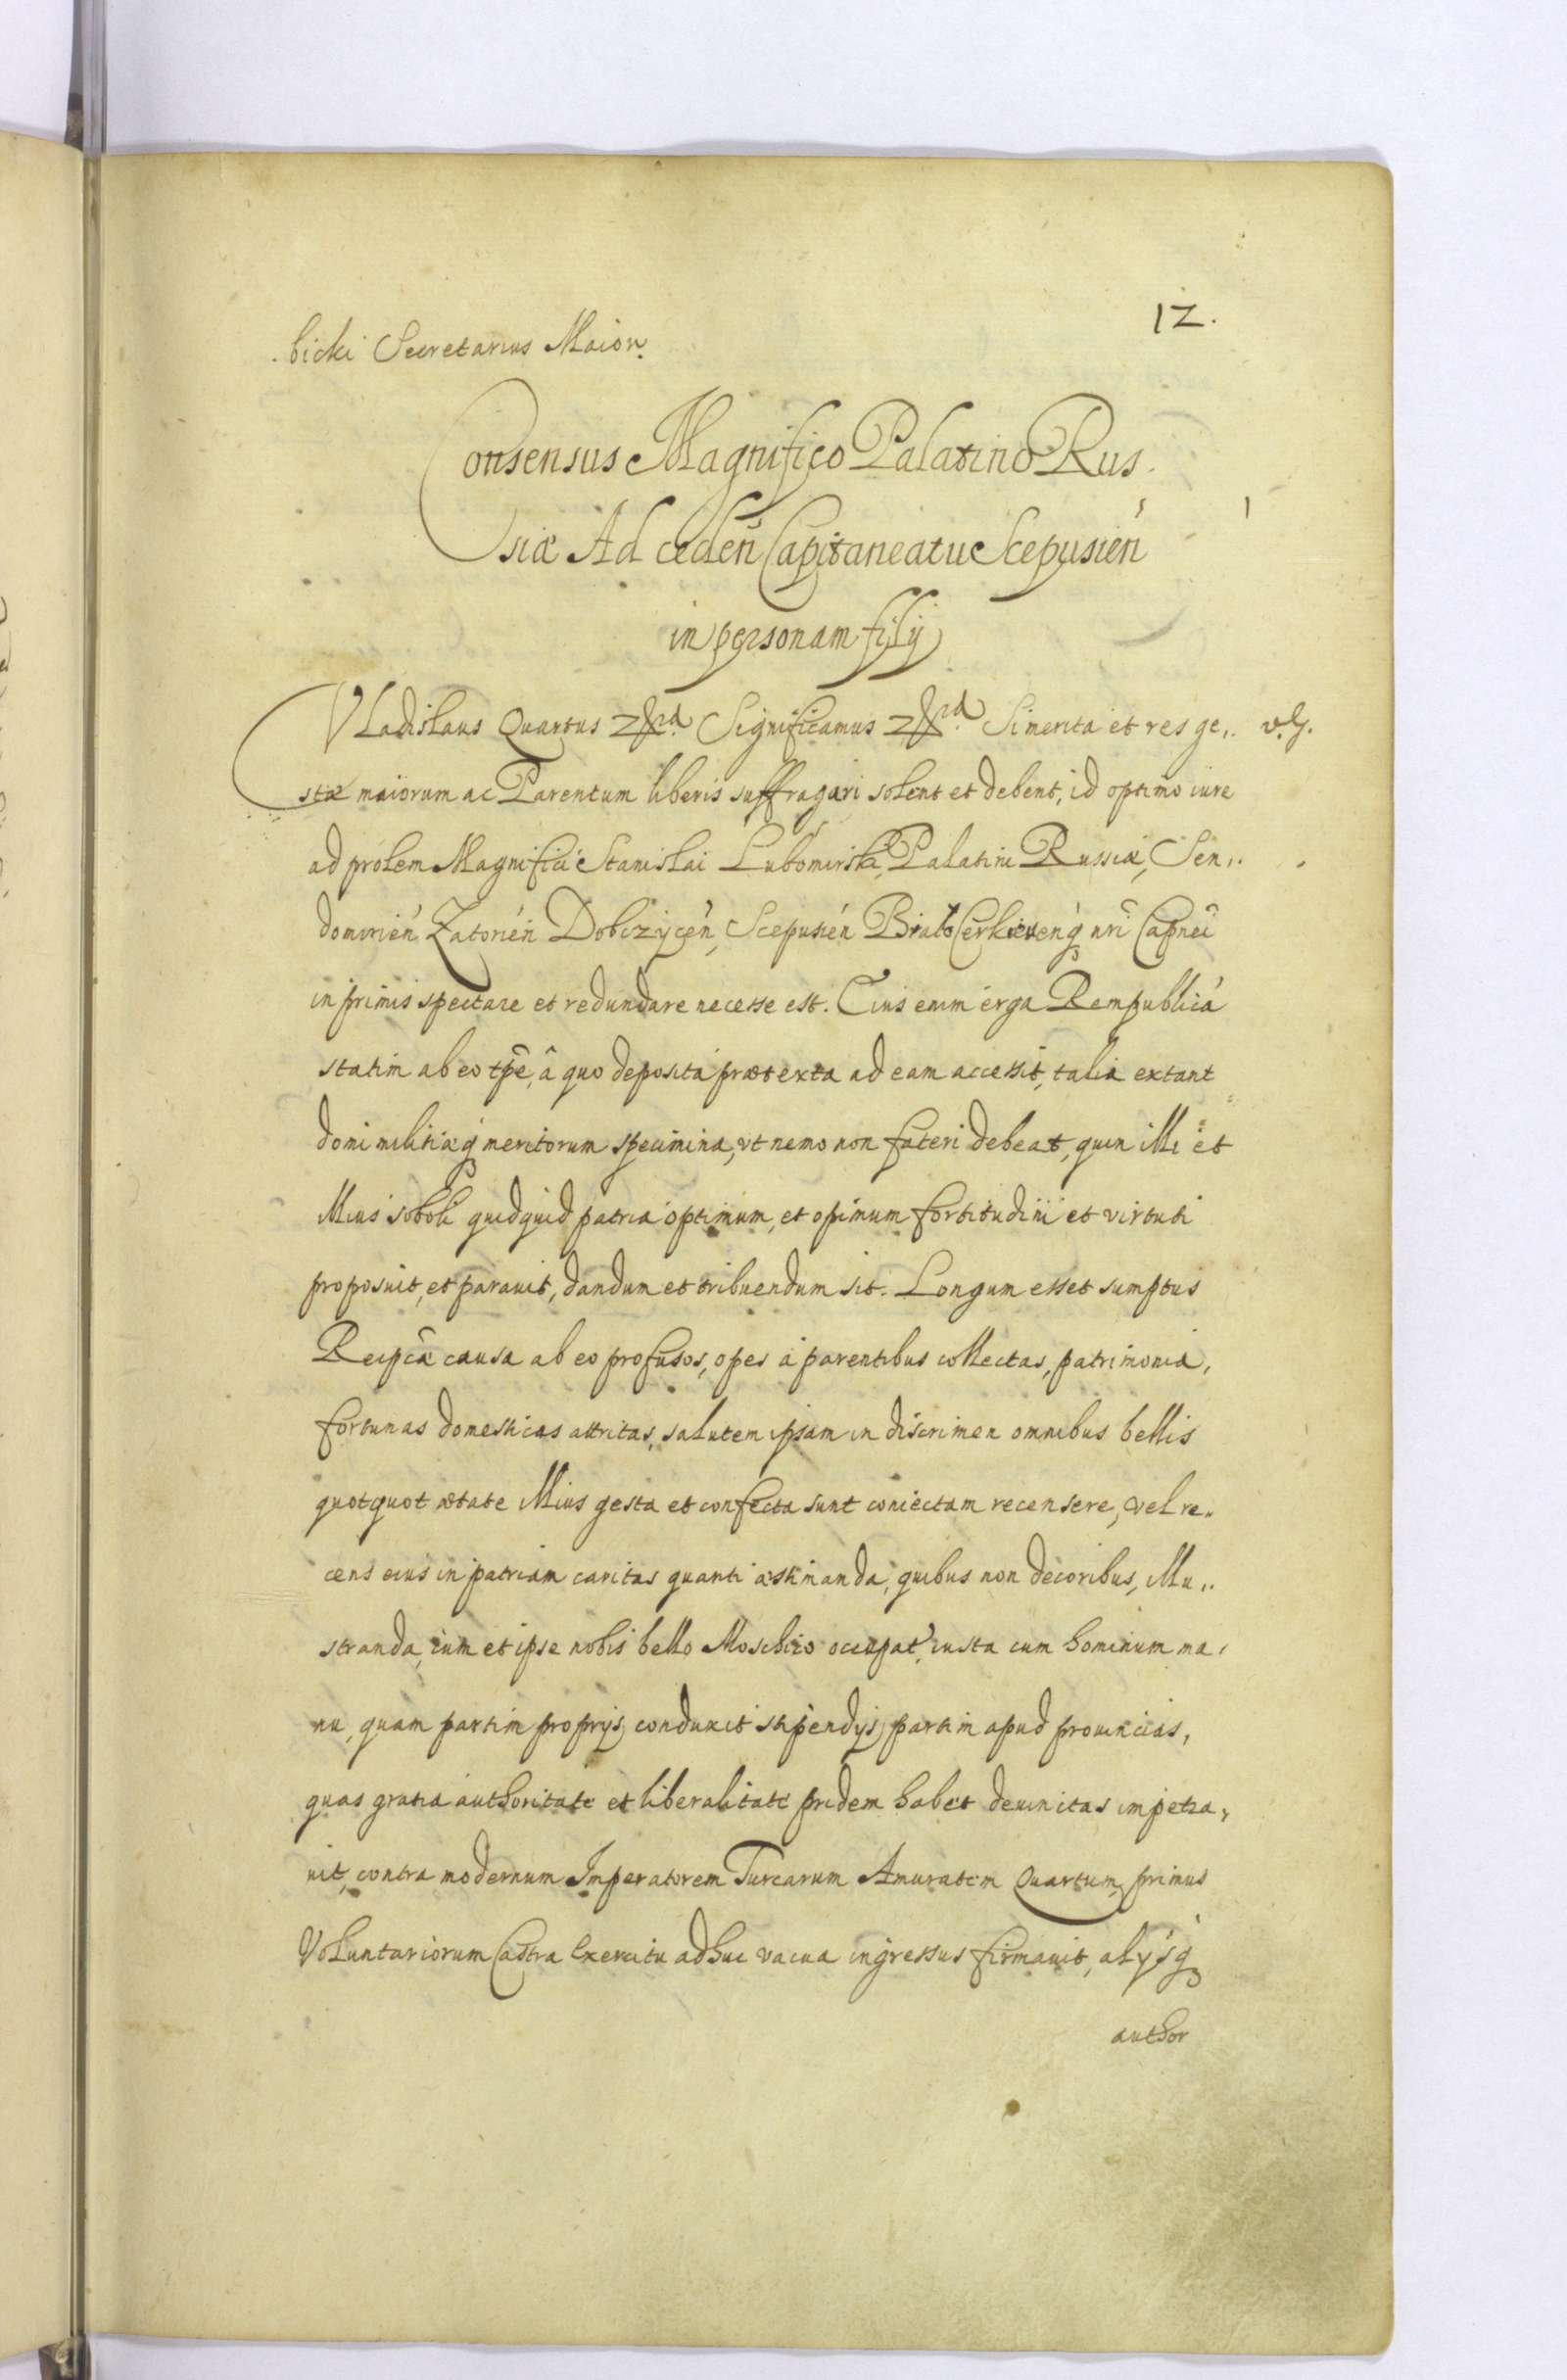 12.
bicki Secretarius Maior.
Consensus Magnifico Palatino Rus
siæ Ad ceden̄ Capitaneatu Scepusien̄
in personam filij
Vladislaus Quartus Significamus Si merita et res ge,, v. G.
stæ maiorum ac Parentum liberis suffragari solent et debent, id optimo iure
ad prolem Magnifici Stanislai Lubomirski, Palatini Russiæ, Sen,,
domirien̄ Zatorien̄ Dobczycen̄, Scepusien̄ Białocerkievenq́ nr̄i Capn̄ei
in primis spectare et redundare necesse est. Eius enim erga Rempublicā
statim ab eo tp̄e, â quo deposita prætexta ad eam accessit, talia extant
domi militiæq́ meritorum specimina, vt nemo non fateri debeat, quin illi et
illius soboli quidquid patria optimum, et opimum fortitudini et virtuti
proposuit, et parauit, dandum et tribuendum sit. Longum esset sumptus
Reipcæ causa ab eo profusos, opes á parentibus collectas, patrimonia,
fortunas domesticas attritas, salutem ipsam in discrimen omnibus bellis
quotquot ætate illius gesta et confecta sunt coniectam recensere, vel re,,
cens eius in patriam caritas quanti æstimanda, quibus non decoribus, illu,,
stranda, cum et ipse nobis bello Moschico occupat, iusta cum hominum ma,
nu, quam partim proprijs conduxit stipendijs, partim apud prouincias,
quas gratia authoritate et liberalitate pridem habet deuinctas impetra,
uit, contra modernum Imperatorem Turcarum Amuratem Quartum, primus
Voluntariorum Castra Exercitu adhuc vacua ingressus firmauit, alijsq́
author